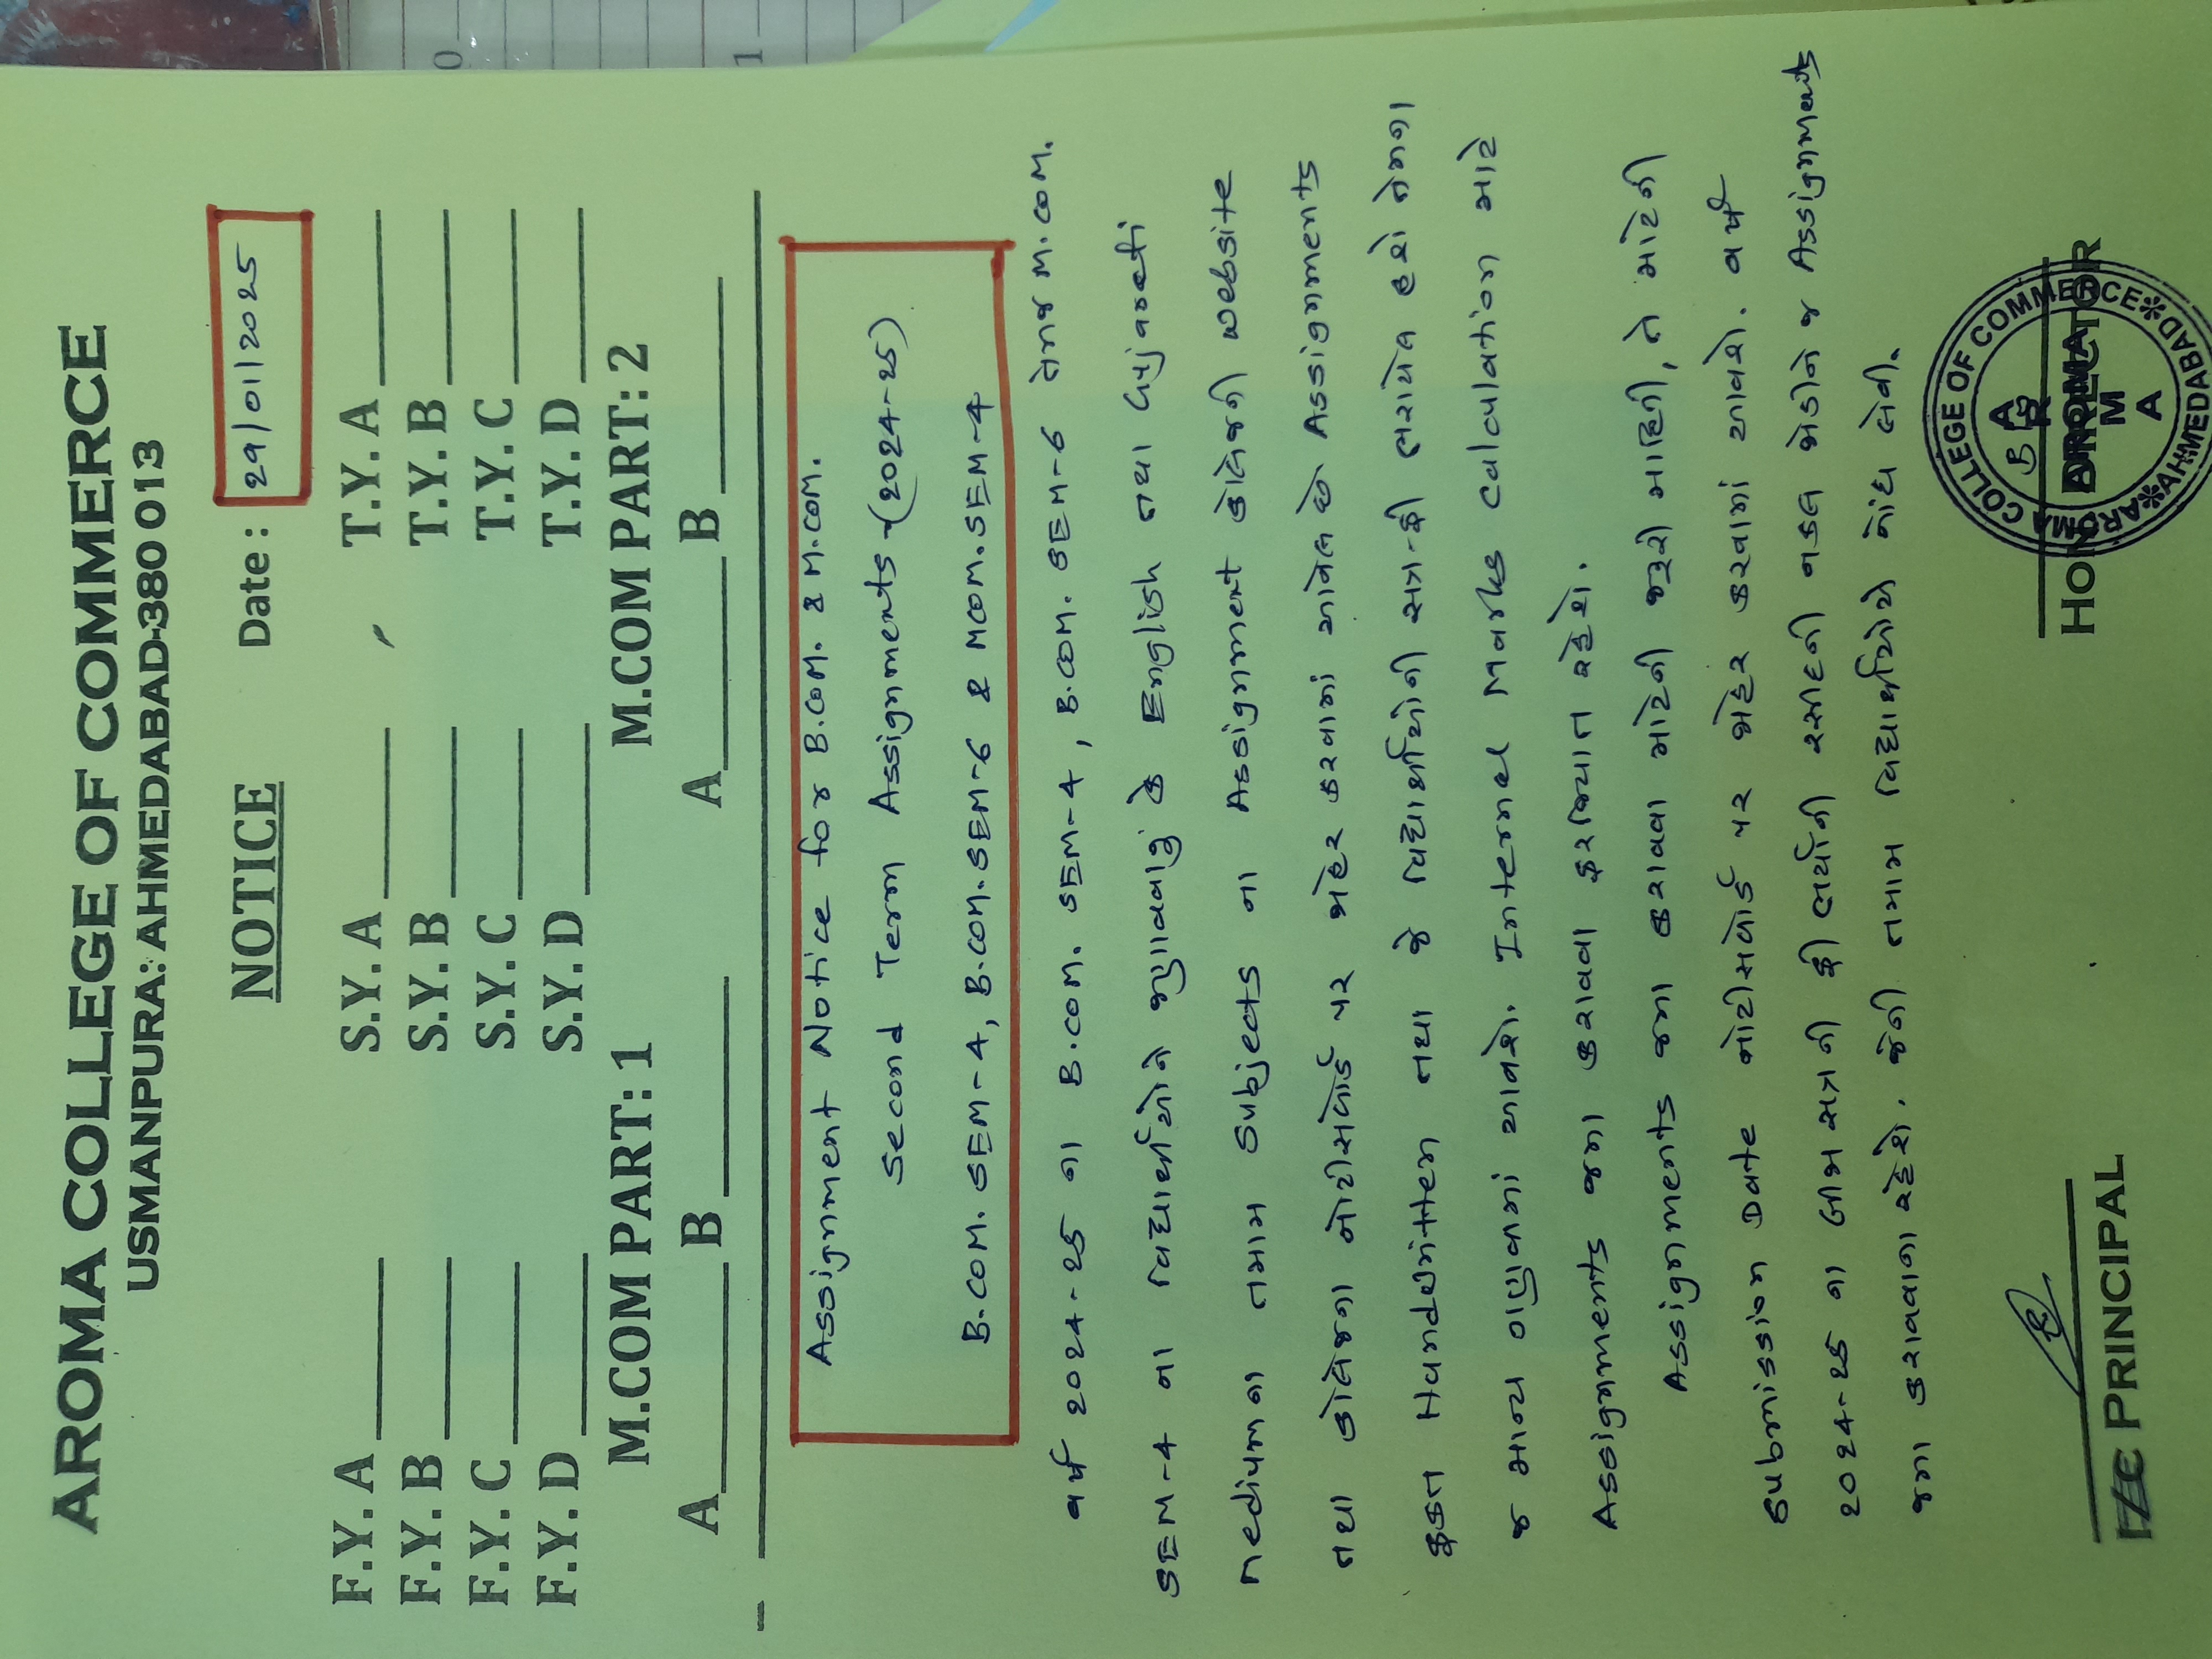 AROMA COLLEGE OF COMMERCE
USMANPURA: AHMEDABAD-380 013
NOTICE Date : 29/01/2025
F.Y. A S.Y. A T.Y. A
F.Y. B S.Y. B T.Y. B
F.Y. C S.Y. C T.Y. C
F.Y. D S.Y. D T.Y. D
M.COM PART: 1 M.COM PART: 2
A B A B
Assignment Notice for B.COM. & M.COM.
Second Term Assignments - (2024-25)
B.COM. SEM-4, B.COM.SEM-6 & MCOM.SEM-4
વર્ષ 2024-25 ના B.COM. SEM-4, B.COM. SEM-6 તેમજ M.COM.
SEM-4 ના વિદ્યાર્થીઓને જણાવવાનું કે English તથા Gujarati
Mediumના તમામ Subjects ના Assignment કોલેજની website
તથા કોલેજના નોટીસબોર્ડ પર જાહેર કરવામાં આવેલ છે. Assignments
ફક્ત Handwritten તથા જે વિદ્યાર્થીઓની સત્ર-ફી ભરાયેલ હશે તેમના
જ માન્ય ગણવામાં આવશે. Internal Marks Calculation માટે
Assignments જમા કરાવવા ફરજિયાત રહેશે.
Assignments જમા કરાવવા માટેની જરૂરી માહિતી, તે માટેની
Submission Date નોટીસબોર્ડ પર જાહેર કરવામાં આવશે. વર્ષ
2024-25 ના બીજા સત્રની ફી ભર્યાની રસીદની નકલ જોડીને જ Assignments
જમા કરાવવાના રહેશે. જેની તમામ વિદ્યાર્થીઓએ નોંધ લેવી.
I/C PRINCIPAL HON. DIRECTOR
AROMA COLLEGE OF COMMERCE * AHMEDABAD *